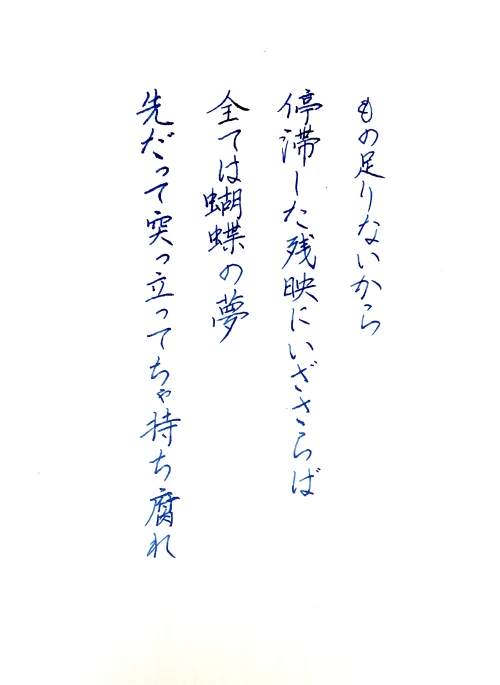 もの足りないから
停滞した残映にいざさらば
全ては蝴蝶の夢
先だって突っ立ってちゃ持ち腐れ